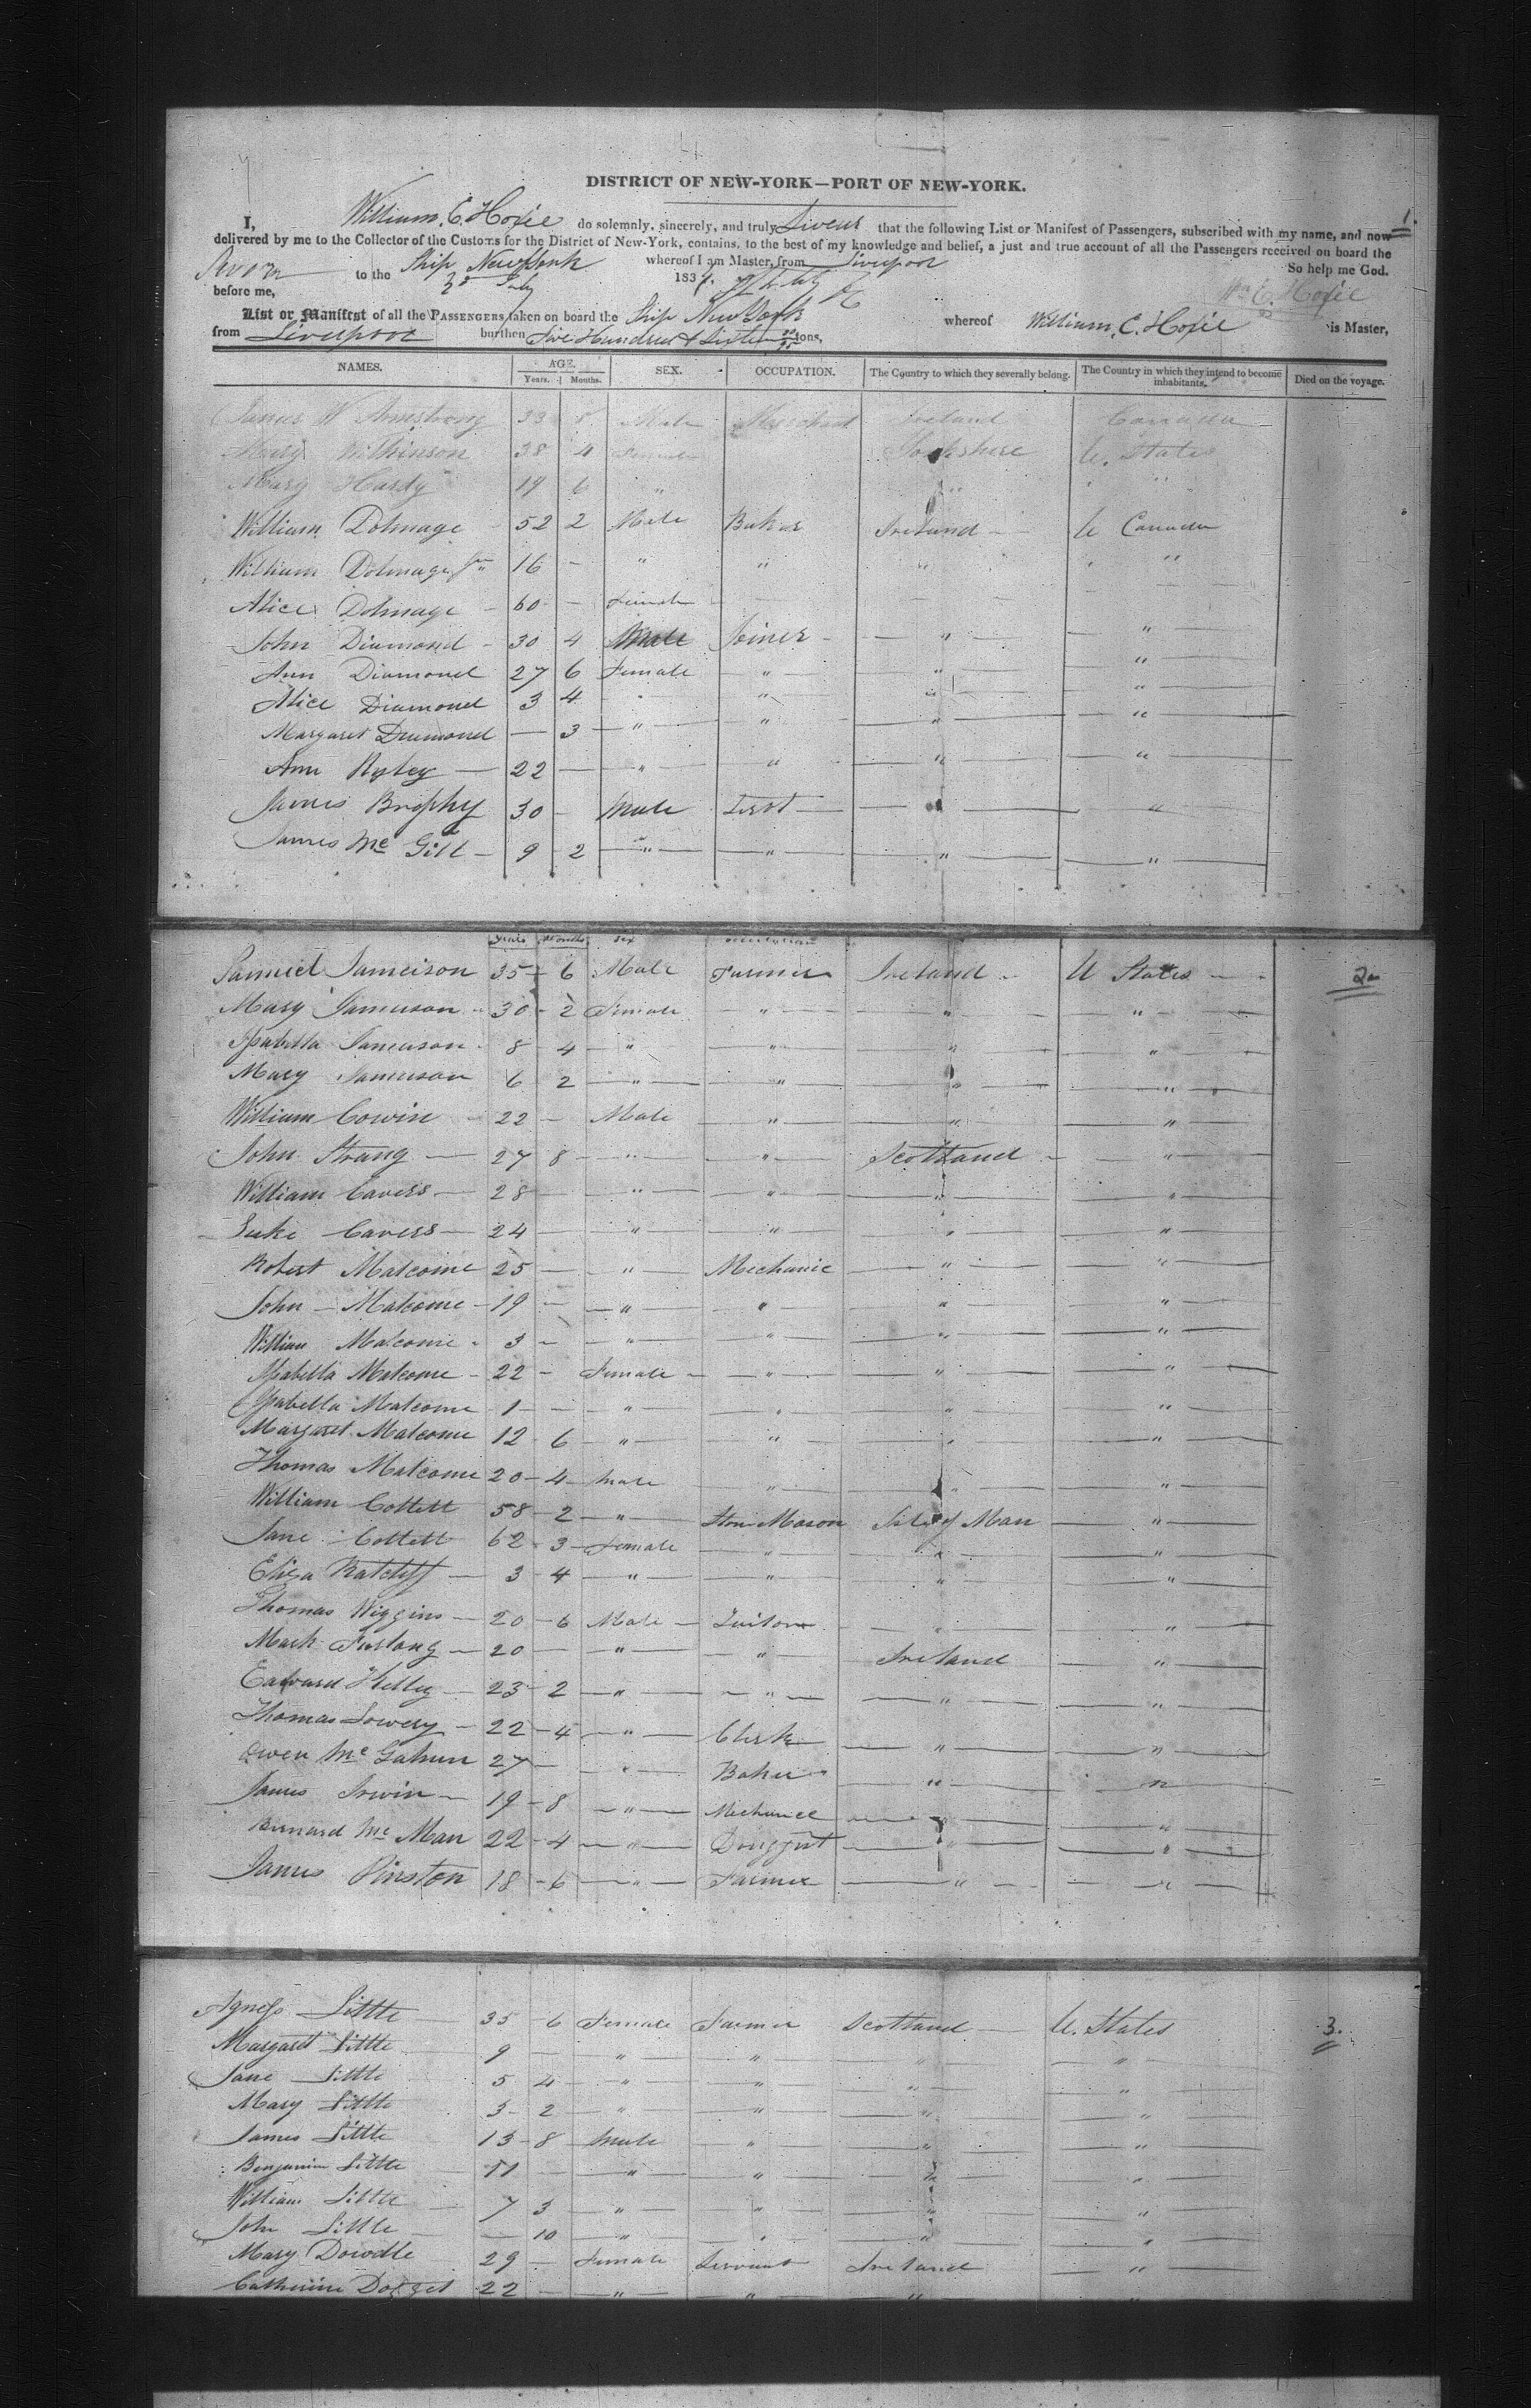 DISTRICT OF NEW-YORK—PORT OF NEW-YORK.
1.
I, William C. Hoxie do solemnly, sincerely, and truly Swear that the following List or Manifest of Passengers, subscribed with my name, and now
delivered by me to the Collector of the Customs for the District of New-York, contains, to the best of my knowledge and belief, a just and true account of all the Passengers received on board the
Ship New York whereof I am Master, from Liverpool
Sworn to the 183 So help me God.
before me, Wm C. Hoxie
List or Manifest of all the PASSENGERS taken on board the Ship New York whereof William C. Hoxie is Master,
from Liverpool burthen Five Hundred & Sixteen tons,
NAMES. AGE. Years. Months. SEX. OCCUPATION. The Country to which they severally belong. The Country in which they intend to become inhabitants. Died on the voyage.
James W Armstrong 33 8 Male Merchant Ireland Canada
Mary Wilkinson 38 4 Female Yorkshire U. States
Mary Hardy 19 6 " " "
William Dolmage 52 2 Male Baker Ireland U Canada
William Dolmage Jun 16 - " " " "
Alice Dolmage 60 - Female
John Diamond 30 4 Male Joiner " "
Ann Diamond 27 6 Female " " "
Alice Diamond 3 4 " " " "
Margaret Diamond — 3 " " " "
Ann 22 — " " " "
James Brophy 30 - Male " "
James Mc Gill 9 2 " " " "
Years Months Sex Occupation
2
Samuel Jameison 35 6 Male Farmer Ireland U States
Mary Jameison 30 2 Female " " "
Isabella Jameison 8 4 " " " "
Mary Jameison 6 2 " " " "
William Cowin 22 - Male " " "
John Strang 27 8 " " Scotland "
William Cavers 28 — " " " "
Luke Cavers 24 — " " " "
Robert Malcome 25 — " Mechanic " "
John Malcome 19 - " " " "
William Malcome 3 - " " " "
Isabella Malcome 22 - Female " " "
Isabella Malcome 1 - " " " "
Margaret Malcome 12 6 " " " "
Thomas Malcome 20 4 Male " " "
William Cottell 58 2 " Stone Mason Isle of Man "
Jane Cottell 62 3 Female " " "
Eliza Ratcliff 3 4 " " " "
Thomas Wiggins 20 6 Male " "
Mark Furlong 20 — " " Ireland "
Edward Kelly 23 2 " " " "
Thomas Lowery 22 4 " Clerk " "
Owen Mc Gahan 27 — " Baker " "
James Irwin 19 8 " Mechanic " "
Bernard Mc Man 22 4 " " "
James Pinston 18 6 " Farmer " "
3.
Agness Little 35 6 Female Farmer Scotland U. States
Margaret Little 9 — " " " "
Jane Little 5 4 " " " "
Mary Little 3 2 " " " "
James Little 13 8 Male " " "
Benjamin Little 11 — " " " "
William Little 7 3 " " " "
John Little — 10 " " " "
Mary Dowdle 29 — Female Servant Ireland "
Catherine 22 — " " " "